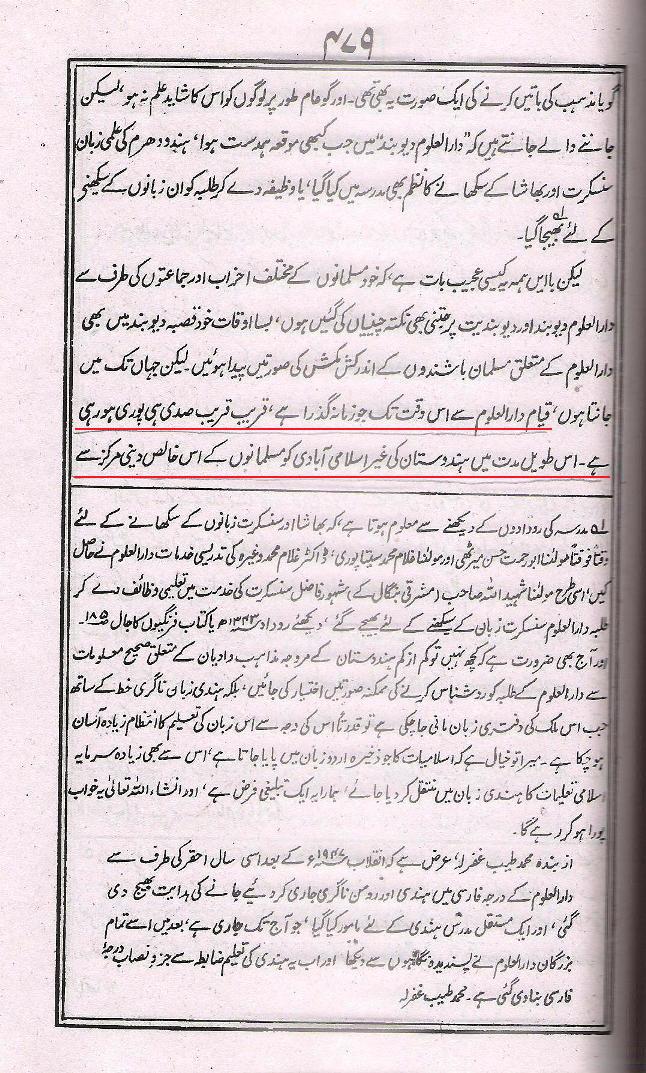 ۴۷۹
گویا مذہب کی باتیں کرنے کی ایک صورت یہ بھی تھی۔ اور گو عام طور پر لوگوں کو اس کا شاید علم نہ ہو، لیکن
جاننے والے جانتے ہیں کہ "دارالعلوم دیوبند" میں جب کبھی موقعہ ہمدست ہوا، ہندو دھرم کی علمی زبان
سنسکرت اور بھاشا کے سکھانے کا نظم بھی مدرسہ میں کیا گیا، یا وظیفہ دے کر طلبہ کو ان زبانوں کے سیکھنے
کے لئے بھیجا گیا۔ لہ
لیکن باایں ہمہ یہ کیسی عجیب بات ہے، کہ خود مسلمانوں کے مختلف احزاب اور جماعتوں کی طرف سے
دارالعلوم دیوبند اور دیوبندیت پر جتنی بھی نکتہ چینیاں کی گئیں ہوں، بسا اوقات خود قصبہ دیوبند میں بھی
دارالعلوم کے متعلق مسلمان باشندوں کے اندر کش مکش کی صورتیں پیدا ہوئیں۔ لیکن جہاں تک میں
جانتا ہوں، قیام دارالعلوم سے اس وقت تک جو زمانہ گذرا ہے، قریب قریب صدی ہی پوری ہو رہی
ہے۔ اس طویل مدت میں ہندوستان کی غیر اسلامی آبادی کو مسلمانوں کے اس خالص دینی مرکز سے
لہ مدرسہ کی رودادوں کے دیکھنے سے معلوم ہوتا ہے، کہ بھاشا اور سنسکرت زبانوں کے سکھانے کے لئے
وقتاً فوقتاً مولٰنا ابو رحمت حسن میرٹھی اور مولٰنا غلام محمد سیتاپوری، ڈاکٹر غلام محمد وغیرہ کی تدریسی خدمات دارالعلوم نے حاصل
کیں، اسی طرح مولٰنا شہید اللہ صاحب (مشرقی بنگال کے) مشہور فاضل سنسکرت کی خدمت میں تعلیمی وظائف دے کر
طلبہ دارالعلوم سنسکرت زبان کے سیکھنے کے لئے بھیجے گئے، دیکھئے روداد ۱۳۴۳ھ یا کتاب فرنگیوں کا جال ۱۸۵۔
اور آج بھی ضرورت ہے کہ کچھ نہیں تو کم از کم ہندوستان کے مروجہ مذاہب و ادیان کے متعلق صحیح معلومات
سے دارالعلوم کے طلبہ کو روشناس کرنے کی ممکنہ صورتیں اختیار کی جائیں، بلکہ ہندی زبان ناگری خط کے ساتھ
جب اس ملک کی دفتری زبان مانی جا چکی ہے تو قدرتاً اس کی وجہ سے اس زبان کی تعلیم کا انتظام زیادہ آسان
ہو چکا ہے۔ میرا تو خیال ہے کہ اسلامیات کا جو ذخیرہ اردو زبان میں پایا جاتا ہے، اس سے بھی زیادہ سرمایہ
اسلامی تعلیمات کا ہندی زبان میں منتقل کر دیا جائے، ہمارا یہ ایک تبلیغی فرض ہے، اور انشاء اللہ تعالیٰ یہ خواب
پورا ہو کر رہے گا۔
از بندہ محمد طیب غفرلہ، عرض ہے کہ انقلاب ۱۹۴۷ء کے بعد اسی سال احقر کی طرف سے
دارالعلوم کے درجہ فارسی میں ہندی اور رومن ناگری جاری کر دئیے جانے کی ہدایت بھیج دی
گئی، اور ایک مستقل مدرس ہندی کے لئے مامور کیا گیا، جو آج تک جاری ہے، بعد میں اسے تمام
بزرگان دارالعلوم نے پسندیدہ نگاہوں سے دیکھا اور اب یہ ہندی کی تعلیم ضابطہ سے جزو نصاب درجہٴ
فارسی بنا دی گئی ہے۔ محمد طیب غفرلہ